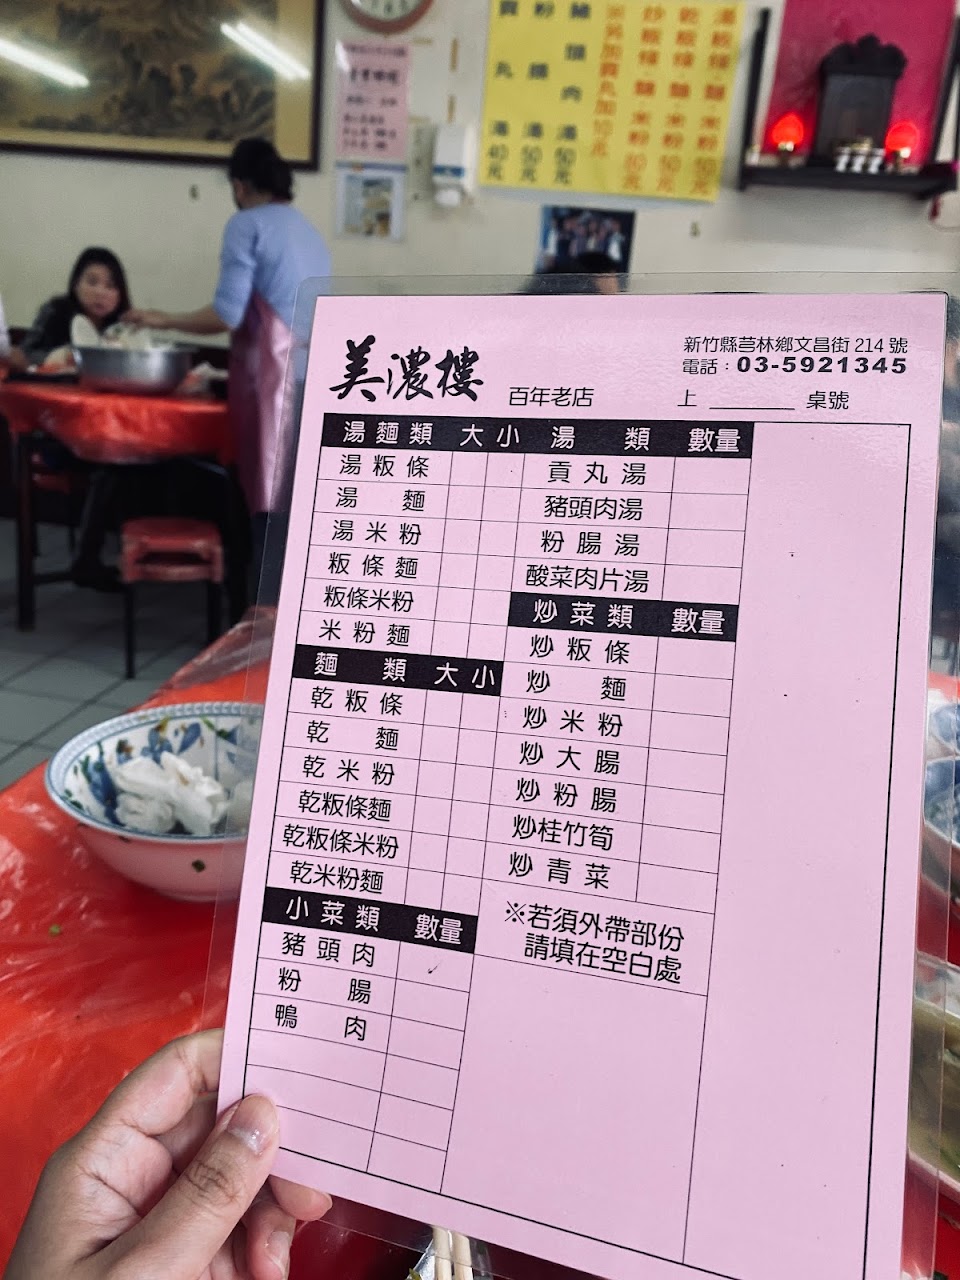 湯粄條‧麵‧米粉 50元
乾粄條‧麵‧米粉 50元
炒粄條‧麵‧米粉 60元
※另加貢丸加10元
豬頭肉湯 50元
粉腸湯 50元
貢丸湯 40元
美濃樓 百年老店
新竹縣芎林鄉文昌街 214 號
電話：03-5921345
上 ______ 桌號
湯麵類 大 小
湯粄條
湯麵
湯米粉
粄條麵
粄條米粉
米粉麵
麵類 大 小
乾粄條
乾麵
乾米粉
乾粄條麵
乾粄條米粉
乾米粉麵
小菜類 數量
豬頭肉
粉腸
鴨肉
湯類 數量
貢丸湯
豬頭肉湯
粉腸湯
酸菜肉片湯
炒菜類 數量
炒粄條
炒麵
炒米粉
炒大腸
炒粉腸
炒桂竹筍
炒青菜
※若須外帶部份
請填在空白處